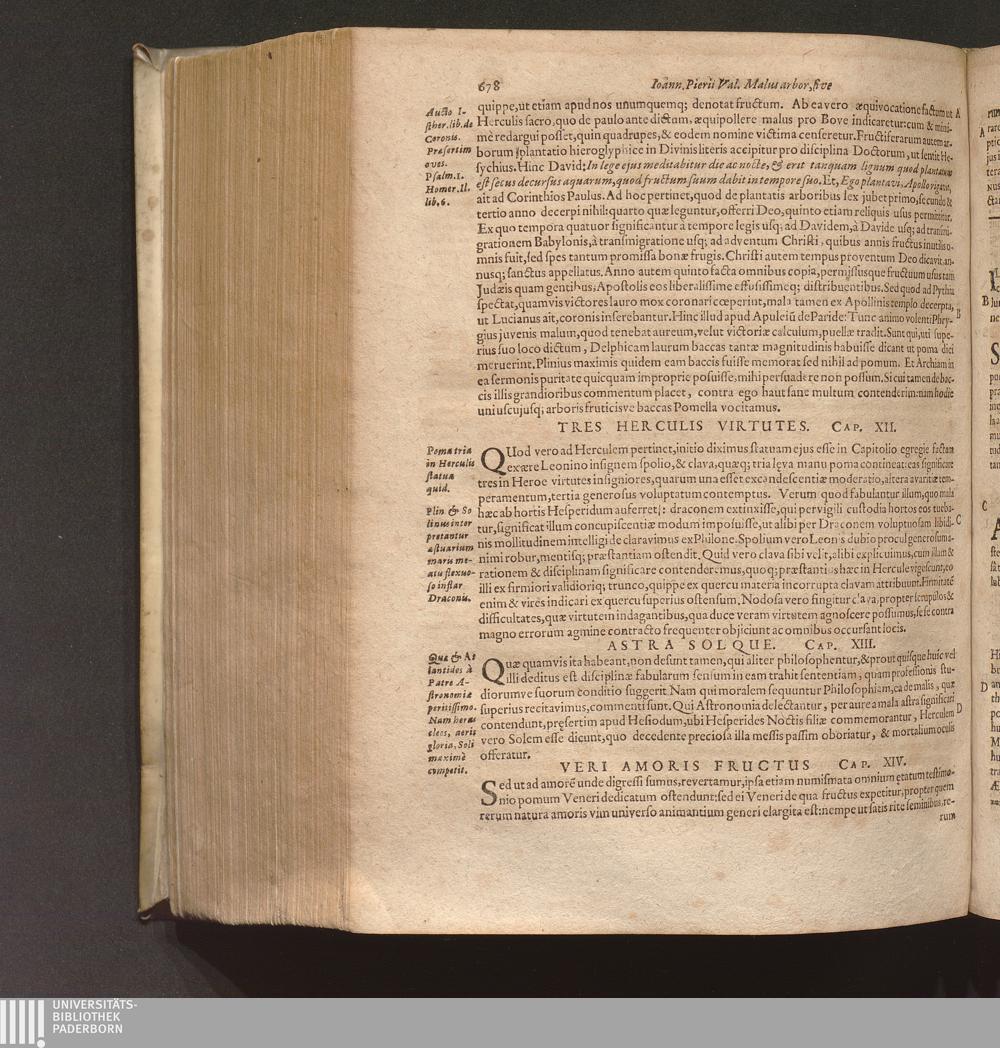 678 Ioann. Pierii Val. Malus arbor, sive
quippe, ut etiam apud nos unumquemq; denotat fructum. Ab ea vero æquivocatione factum ut A
Herculis sacro, quo de paulo ante dictum, æquipollere malus pro Bove indicaretur: cum & mini-
mè redargui posset, quin quadrupes, & eodem nomine victima censeretur. Fructiferarum autem ar-
borum plantatio hieroglyphice in Divinis literis accipitur pro disciplina Doctorum, ut sentit He-
sychius. Hinc David: In lege ejus meditabitur die ac nocte, & erit tanquam lignum quod plantatum
est secus decursus aquarum, quod fructum suum dabit in tempore suo. Et, Ego plantavi, Apollo rigavit,
ait ad Corinthios Paulus. Ad hoc pertinet, quod de plantatis arboribus lex jubet primo, secundo &
tertio anno decerpi nihil: quarto quæ leguntur, offerri Deo, quinto etiam reliquis usus permittitur.
Ex quo tempora quatuor significantur à tempore legis usq; ad Davidem, à Davide usq; ad transmi-
grationem Babylonis, à transmigratione usq; ad adventum Christi, quibus annis fructus inutilis o-
mnis fuit, sed spes tantum promissa bonæ frugis. Christi autem tempus proventum Deo dicavit, an-
nusq; sanctus appellatus. Anno autem quinto facta omnibus copia, permissusque fructuum usus tam
Judæis quam gentibus, Apostolis eos liberalissime effusissimeq; distribuentibus. Sed quod ad Pythia
spectat, quamvis victores lauro mox coronari cœperint, mala tamen ex Apollinis templo decerpta,
ut Lucianus ait, coronis inserebantur. Hinc illud apud Apuleiū de Paride: Tunc animo volenti Phry- B
gius juvenis malum, quod tenebat aureum, velut victoriæ calculum, puellæ tradit. Sunt qui, uti supe-
rius suo loco dictum, Delphicam laurum baccas tantæ magnitudinis habuisse dicant ut poma dici
meruerint. Plinius maximis quidem eam baccis fuisse memorat sed nihil ad pomum. Et Archiam in
ea sermonis puritate quicquam improprie posuisse, mihi persuadere non possum. Si cui tamen de bac-
cis illis grandioribus commentum placet, contra ego haut sane multum contenderim: nam hodie
uniuscujusq; arboris fruticisve baccas Pomella vocitamus.
Auctio I-
sther. lib. de
Coronis.
Præsertim
oves.
Psalm. 1.
Homer. Il.
lib. 6.
TRES HERCULIS VIRTUTES. CAP. XII.
QUod vero ad Herculem pertinet, initio diximus statuam ejus esse in Capitolio egregie factam
ex ære Leonino insignem spolio, & clava, quæq; tria leva manu poma contineat: eas significare
tres in Heroe virtutes insigniores, quarum una esset excandescentiæ moderatio, altera avaritiæ tem-
peramentum, tertia generosus voluptatum contemptus. Verum quod fabulantur illum, quo mala
hæc ab hortis Hesperidum auferret: draconem extinxisse, qui pervigili custodia hortos eos tueba-
tur, significat illum concupiscentiæ modum imposuisse, ut alibi per Draconem voluptuosam libidi- C
nis mollitudinem intelligi declaravimus ex Philone. Spolium vero Leonis dubio procul generosum a-
nimi robur, mentisq; præstantiam ostendit. Quid vero clava sibi velit, alibi explicuimus, cum illam &
rationem & disciplinam significare contenderemus, quoq; præstantius hæc in Hercule vigescunt, eo
illi ex firmiori validioriq; trunco, quippe ex quercu materia incorrupta clavam attribuunt. Firmitatē
enim & vires indicari ex quercu superius ostensum. Nodosa vero fingitur clava, propter scrupulos &
difficultates, quæ virtutem indagantibus, qua duce veram virtutem agnoscere possumus, sese contra
magno errorum agmine contracto frequenter objiciunt ac omnibus occursant locis.
Poma tria
in Herculis
statua
quid.
Plin & So
linus inter
pretantur
æstuarium
maris me-
atu flexuo-
so instar
Draconis.
ASTRA SOLQUE. CAP. XIII.
Quæ quamvis ita habeant, non desunt tamen, qui aliter philosophentur, & prout quisque huic vel
illi deditus est disciplinæ fabularum sensum in eam trahit sententiam, quam professionis stu-
diorumve suorum conditio suggerit Nam qui moralem sequuntur Philosophiam, ea de malis, quæ
superius recitavimus, commenti sunt. Qui Astronomia delectantur, per aurea mala astra significari D
contendunt, pręsertim apud Hesiodum, ubi Hesperides Noctis filiæ commemorantur, Herculem
vero Solem esse dicunt, quo decedente preciosa illa messis passim oboriatur, & mortalium oculis
offeratur.
Qua & At
lantides à
Patre A-
stronomiæ
peritissimo.
Nam heras
cleos, aeris
gloria, Soli
maximè
competit.
VERI AMORIS FRUCTUS CAP. XIV.
Sed ut ad amorē unde digressi sumus, revertamur, ipsa etiam numismata omnium ętatum testimo-
nio pomum Veneri dedicatum ostendunt: sed ei Veneri de qua fructus expetitur, propter quem
rerum natura amoris vim universo animantium generi elargita est: nempe ut satis rite seminibus, re-
rum
UNIVERSITÄTS-
BIBLIOTHEK
PADERBORN